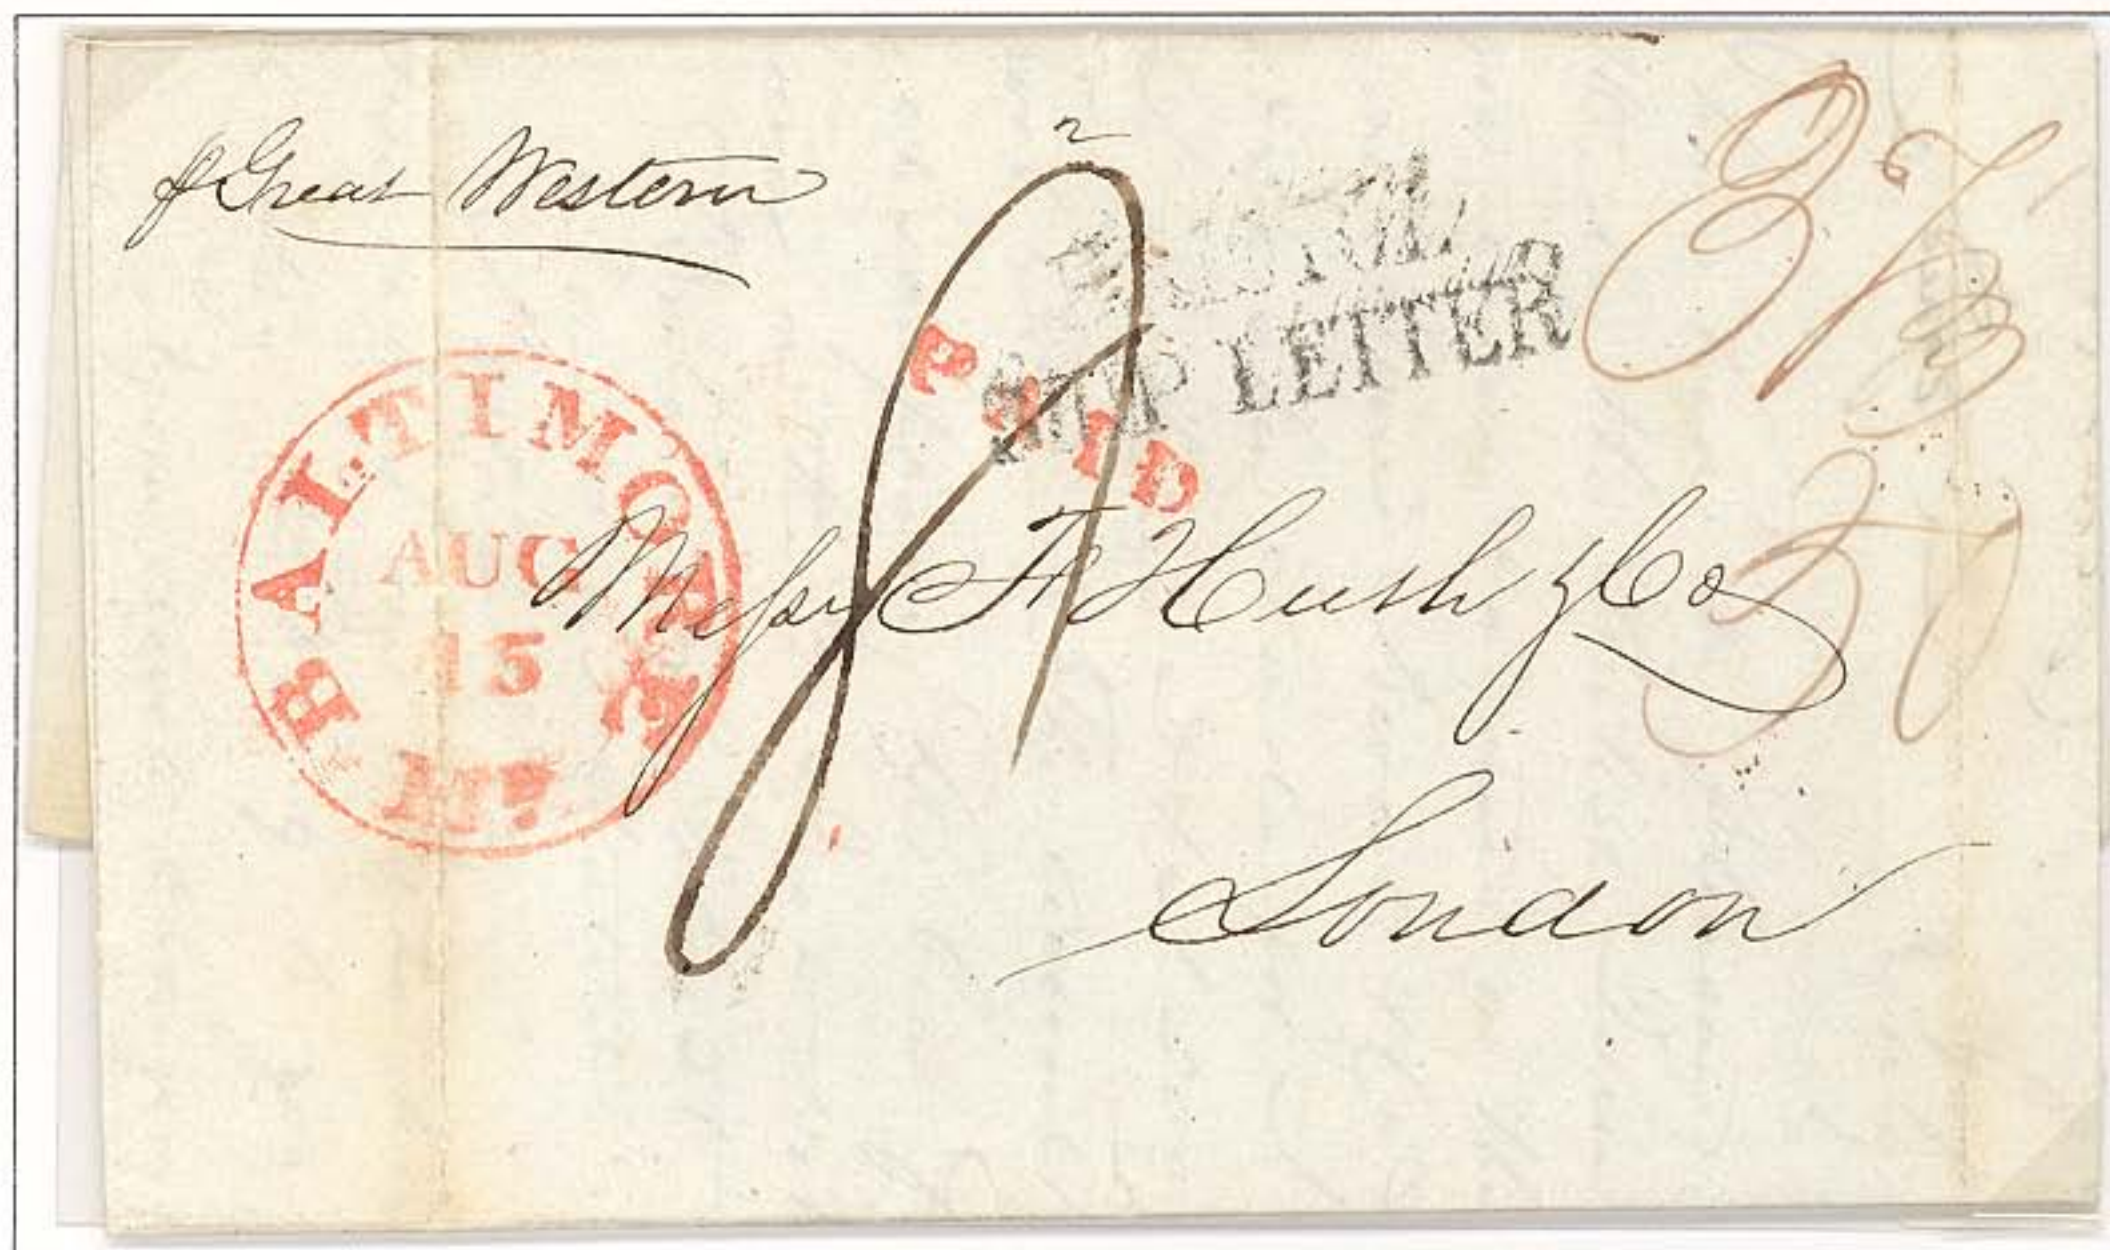 p Great Western
2
PAID
SHIP LETTER
BALTIMORE
AUG
15
Md.
Messrs F. Huth & Co
London
37